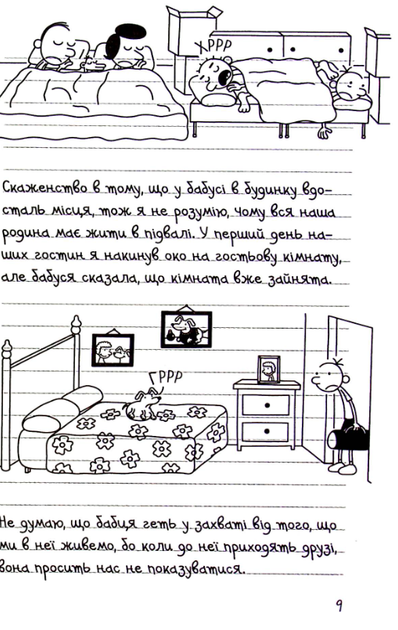 ХРРР
Скаженство в тому, що у бабусі в будинку вдо-
сталь місця, тож я не розумію, чому вся наша
родина має жити в підвалі. У перший день на-
ших гостин я накинув око на гостьову кімнату,
але бабуся сказала, що кімната вже зайнята.
ГРРР
Не думаю, що бабця геть у захваті від того, що
ми в неї живемо, бо коли до неї приходять друзі,
вона просить нас не показуватися.
9